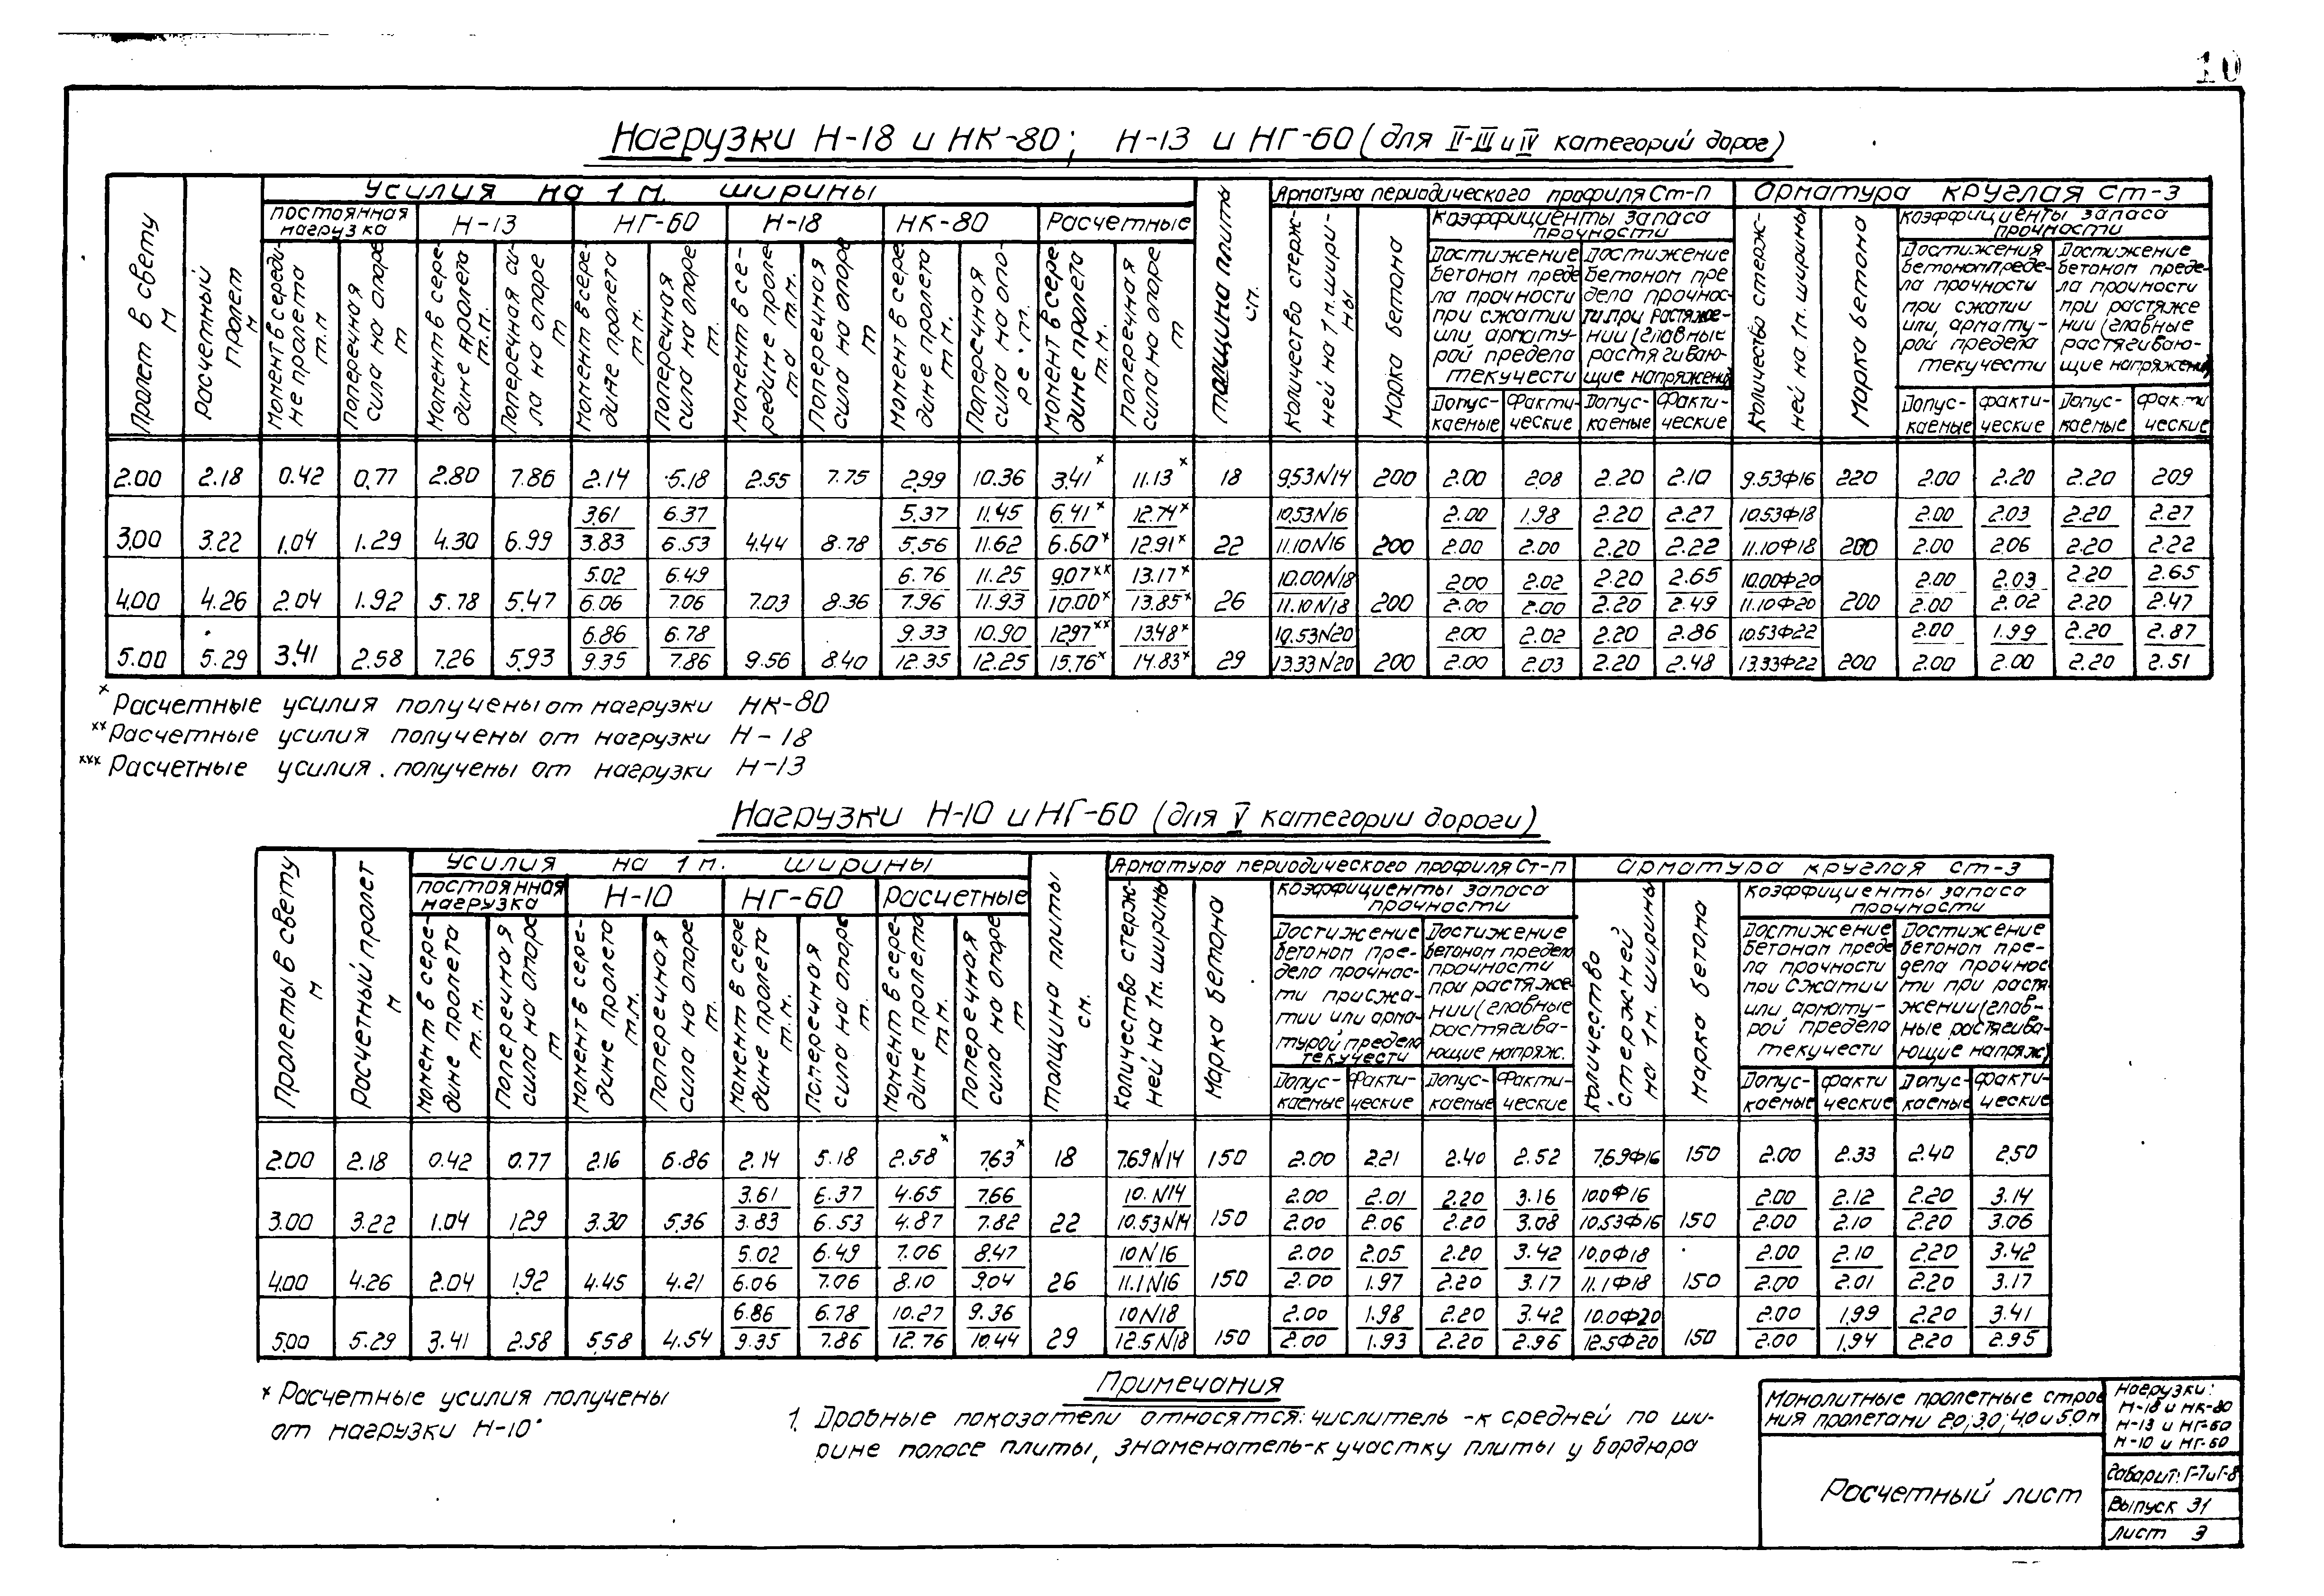 10
Нагрузки Н-18 и НК-80; Н-13 и НГ-60 (для II-III и IV категорий дорог)
Пролет в свету м
Расчетный пролет м
Усилия на 1 м. ширины
постоянная нагрузка
Н-13
НГ-60
Н-18
НК-80
Расчетные
Момент в середине пролета т.м
Поперечная сила на опоре т
Момент в середине пролета т.м.
Поперечная сила на опоре т
Момент в середине пролета т.м.
Поперечная сила на опоре т
Момент в середине пролета т.м.
Поперечная сила на опоре т
Момент в середине пролета т.м.
Поперечная сила на опоре т.
Момент в середине пролета т.м.
Поперечная сила на опоре т
Толщина плиты см.
Арматура периодического профиля Ст-П
Количество стержней на 1 м. ширины
Марка бетона
Коэффициенты запаса прочности
Достижение бетоном предела прочности при сжатии или арматурой предела текучести
Достижение бетоном предела прочности при растяжении (главные растягивающие напряжения)
Допускаемые
Фактические
Допускаемые
Фактические
Арматура круглая Ст-3
Количество стержней на 1 м. ширины
Марка бетона
Коэффициенты запаса прочности
Достижения бетоном предела прочности при сжатии или, арматурой предела текучести
Достижение бетоном предела прочности при растяжении (главные растягивающие напряжения)
Допускаемые
Фактические
Допускаемые
Фактические
2.00 2.18 0.42 0.77 2.80 7.86 2.14 5.18 2.55 7.75 2.99 10.36 3.41x 11.13x 18 9.53N14 200 2.00 2.08 2.20 2.10 9.53Ф16 220 2.00 2.20 2.20 209
3.61 6.37 5.37 11.45 6.41x 12.74x 10.53N16 2.00 1.98 2.20 2.27 10.53Ф18 2.00 2.03 2.20 2.27
3.00 3.22 1.04 1.29 4.30 6.99 3.83 6.53 4.44 8.78 5.56 11.62 6.60x 12.91x 22 11.10N16 200 2.00 2.00 2.20 2.22 11.10Ф18 200 2.00 2.06 2.20 2.22
5.02 6.49 6.76 11.25 9.07xx 13.17x 10.00N18 2.00 2.02 2.20 2.65 10.00Ф20 2.00 2.03 2.20 2.65
4.00 4.26 2.04 1.92 5.78 5.47 6.06 7.06 7.03 8.36 7.96 11.93 10.00x 13.85x 26 11.10N18 200 2.00 2.00 2.20 2.49 11.10Ф20 200 2.00 2.02 2.20 2.47
6.86 6.78 9.33 10.90 12.97xx 13.48x 10.53N20 2.00 2.02 2.20 2.86 10.53Ф22 2.00 1.99 2.20 2.87
5.00 5.29 3.41 2.58 7.26 5.93 9.35 7.86 9.56 8.40 12.35 12.25 15.76x 14.83x 29 13.33N20 200 2.00 2.03 2.20 2.48 13.33Ф22 200 2.00 2.00 2.20 2.51
x Расчетные усилия получены от нагрузки НК-80
xx Расчетные усилия получены от нагрузки Н-18
xxx Расчетные усилия получены от нагрузки Н-13
Нагрузки Н-10 и НГ-60 (для V категории дороги)
Пролеты в свету м
Расчетный пролет м
Усилия на 1 м. ширины
постоянная нагрузка
Н-10
НГ-60
Расчетные
момент в середине пролета т.м.
Поперечная сила на опоре т
момент в середине пролета т.м.
Поперечная сила на опоре т.
момент в середине пролета т.м.
Поперечная сила на опоре т.
момент в середине пролета т.м.
Поперечная сила на опоре т
Толщина плиты см.
Арматура периодического профиля Ст-П
Количество стержней на 1 м. ширины
Марка бетона
Коэффициенты запаса прочности
Достижение бетоном предела прочности при сжатии или арматурой предела текучести
Достижение бетоном предела прочности при растяжении (главные растягивающие напряж.
Допускаемые
Фактические
Допускаемые
Фактические
Арматура круглая ст-3
Количество стержней на 1 м. ширины
Марка бетона
Коэффициенты запаса прочности
Достижение бетоном предела прочности при сжатии или арматурой предела текучести
Достижение бетоном предела прочности при растяжении (главные растягивающие напряж)
Допускаемые
Фактические
Допускаемые
Фактические
2.00 2.18 0.42 0.77 2.16 6.86 2.14 5.18 2.58x 7.63x 18 7.69N14 150 2.00 2.21 2.40 2.52 7.69Ф16 150 2.00 2.33 2.40 2.50
3.61 6.37 4.65 7.66 10.N14 2.00 2.01 2.20 3.16 10.0Ф16 2.00 2.12 2.20 3.14
3.00 3.22 1.04 1.29 3.30 5.36 3.83 6.53 4.87 7.82 22 10.53N14 150 2.00 2.06 2.20 3.08 10.53Ф16 150 2.00 2.10 2.20 3.06
5.02 6.49 7.06 8.47 10N16 2.00 2.05 2.20 3.42 10.0Ф18 2.00 2.10 2.20 3.42
4.00 4.26 2.04 1.92 4.45 4.21 6.06 7.06 8.10 9.04 26 11.1N16 150 2.00 1.97 2.20 3.17 11.1Ф18 150 2.00 2.01 2.20 3.17
6.86 6.78 10.27 9.36 10N18 2.00 1.98 2.20 3.42 10.0Ф20 2.00 1.99 2.20 3.41
5.00 5.29 3.41 2.58 5.58 4.54 9.35 7.86 12.76 10.44 29 12.5N18 150 2.00 1.93 2.20 2.96 12.5Ф20 150 2.00 1.94 2.20 2.95
x Расчетные усилия получены
от нагрузки Н-10
Примечания
1. Дробные показатели относятся: числитель -к средней по ши-
рине полосе плиты, знаменатель-к участку плиты у бордюра
Монолитные пролетные строе
ния пролетами 2.0; 3.0; 4.0 и 5.0м
Расчетный лист
Нагрузки:
Н-18 и НК-80
Н-13 и НГ-60
Н-10 и НГ-60
Габарит: Г-7 и Г-8
Выпуск 31
Лист 3